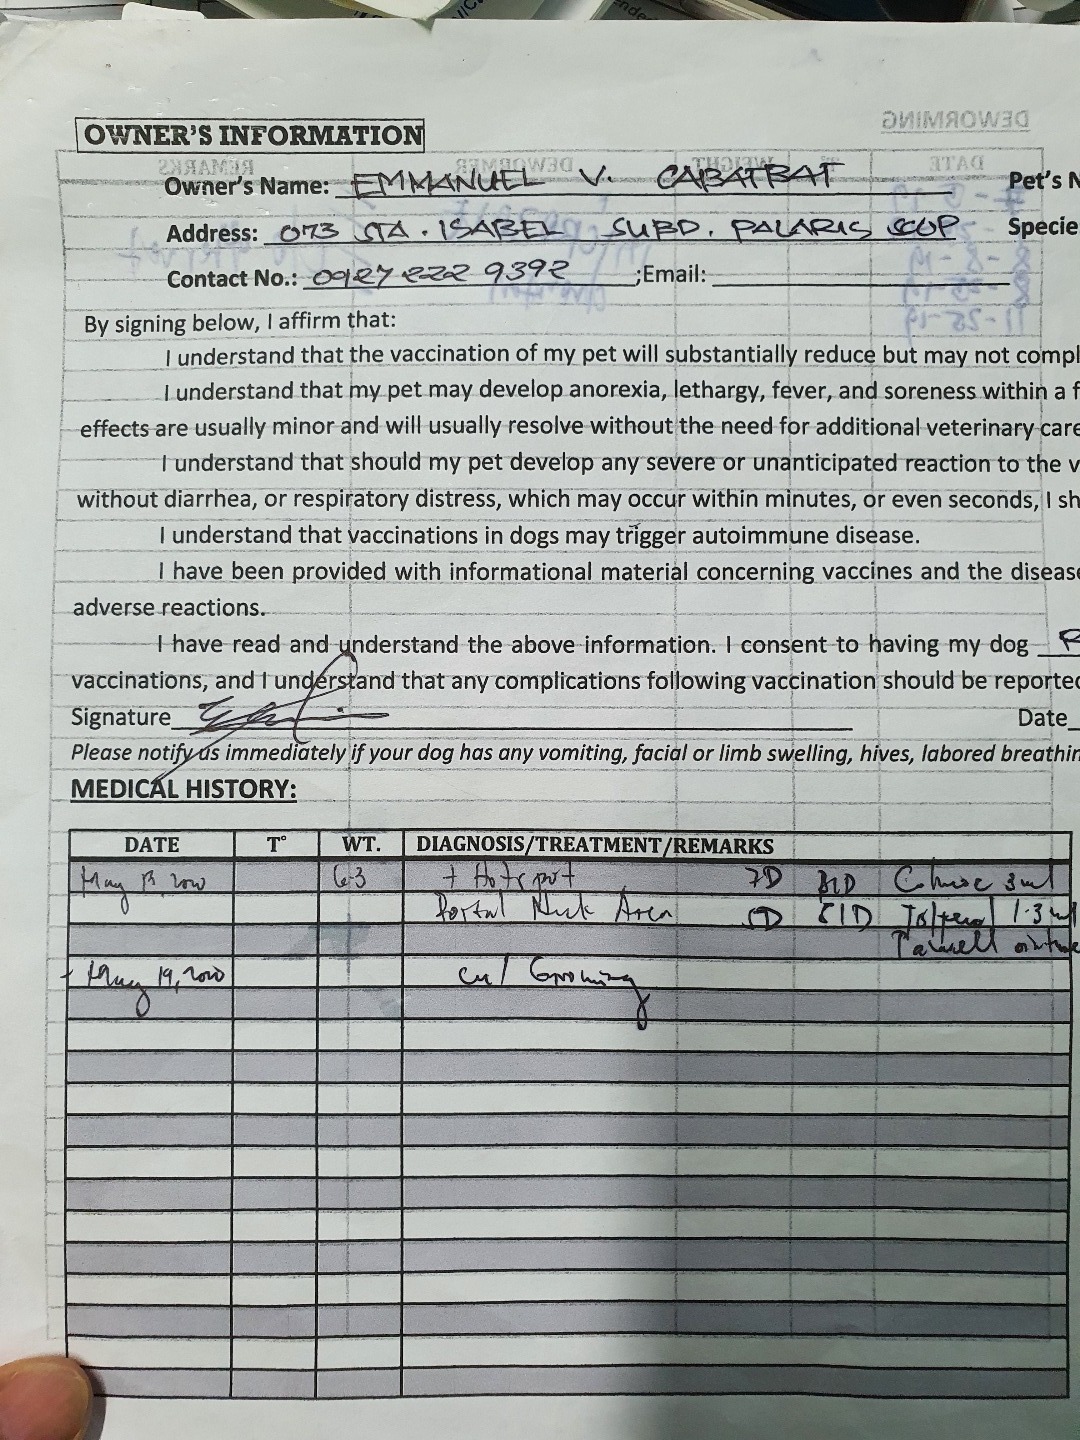 OWNER'S INFORMATION
DEWORMING
DATE WEIGHT DEWORMER REMARKS
Owner's Name: EMMANUEL V. CABATBAT Pet's N
Address: 073 STA. ISABEL SUBD. PALARIS SCCP Specie
Contact No.: 0927 222 9392 ;Email:
11-25-19
By signing below, I affirm that:
I understand that the vaccination of my pet will substantially reduce but may not compl
I understand that my pet may develop anorexia, lethargy, fever, and soreness within a f
effects are usually minor and will usually resolve without the need for additional veterinary care
I understand that should my pet develop any severe or unanticipated reaction to the v
without diarrhea, or respiratory distress, which may occur within minutes, or even seconds, I sh
I understand that vaccinations in dogs may trigger autoimmune disease.
I have been provided with informational material concerning vaccines and the disease
adverse reactions.
I have read and understand the above information. I consent to having my dog
vaccinations, and I understand that any complications following vaccination should be reported
Signature Date
Please notify us immediately if your dog has any vomiting, facial or limb swelling, hives, labored breathin
MEDICAL HISTORY:
DATE T° WT. DIAGNOSIS/TREATMENT/REMARKS
May 13, 2020 6.3 + Hotspot 7D BID 3ml
Neck Area 5D SID 1.3 ml
May 19, 2020 Grooming